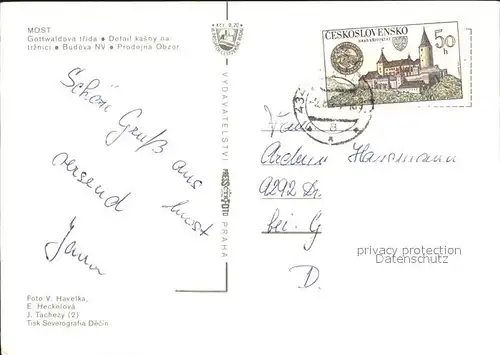 MOST
Gottwaldova třída • Detail kašny na
tržnici • Budova NV • Prodejna Obzor
Schön Gruß aus
most
versend
Jana
Foto V. Havelka,
E. Heckelová
J. Tachezy (2)
Tisk Severografia Děčín
VYDAVATELSTVÍ PRESSFOTO PRAHA
ČESKOSLOVENSKO
50 h
434
a
Hansmann
D.
privacy protection
Datenschutz